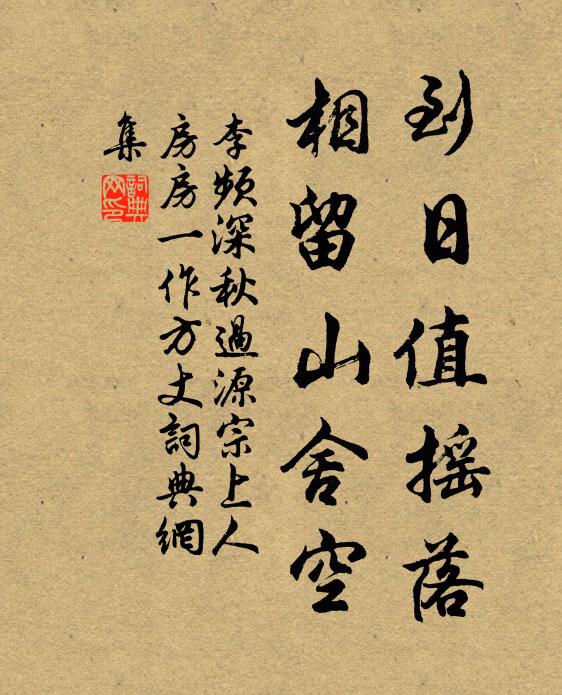 到日值摇落
相留山舍空
李频深秋過源宗上人
房房一作方丈詞典網
集
詞典網印